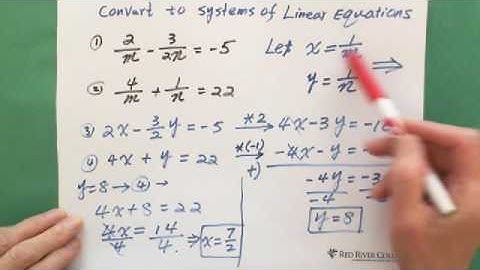 Convert to Systems of Linear Equations
① 2/m - 3/2n = -5
Let x = 1/m ⇒
② 4/m + 1/n = 22
y = 1/n
③ 2x - 3/2 y = -5 *2→ 4x - 3y = -1
④ 4x + y = 22 *(-1)→ -4x - y = -
+)
y=8 → ④ →
-4y/-4 = -3
4x + 8 = 22
y = 8
4x/4 = 14/4 ∴ x = 7/2
RED RIVER COL